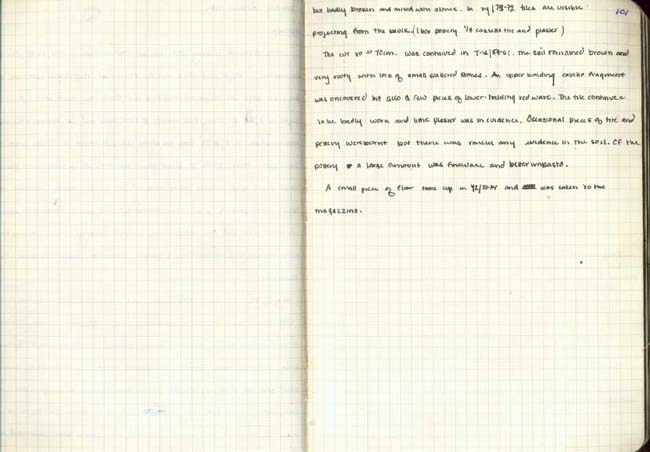 101
but badly broken and mixed with stones. In vy/78-72 tiles are visible
projecting from the baulk. (1 box pottery 1/3 cassetta tile and plaster)
The cut to 70cm. was continued in T-U/59-61. The soil remained brown and
very rooty with lots of small scattered stones. An upper building fragment
was uncovered but also a few pieces of lower-building red ware. The tile continues
to be badly worn and little plaster was in evidence. Occasional pieces of tile and
pottery were burnt but there was rarely any evidence in the soil. Of the
pottery a large amount was fineware and better impasto.
A small piece of came up in and was taken to the
magazzino.